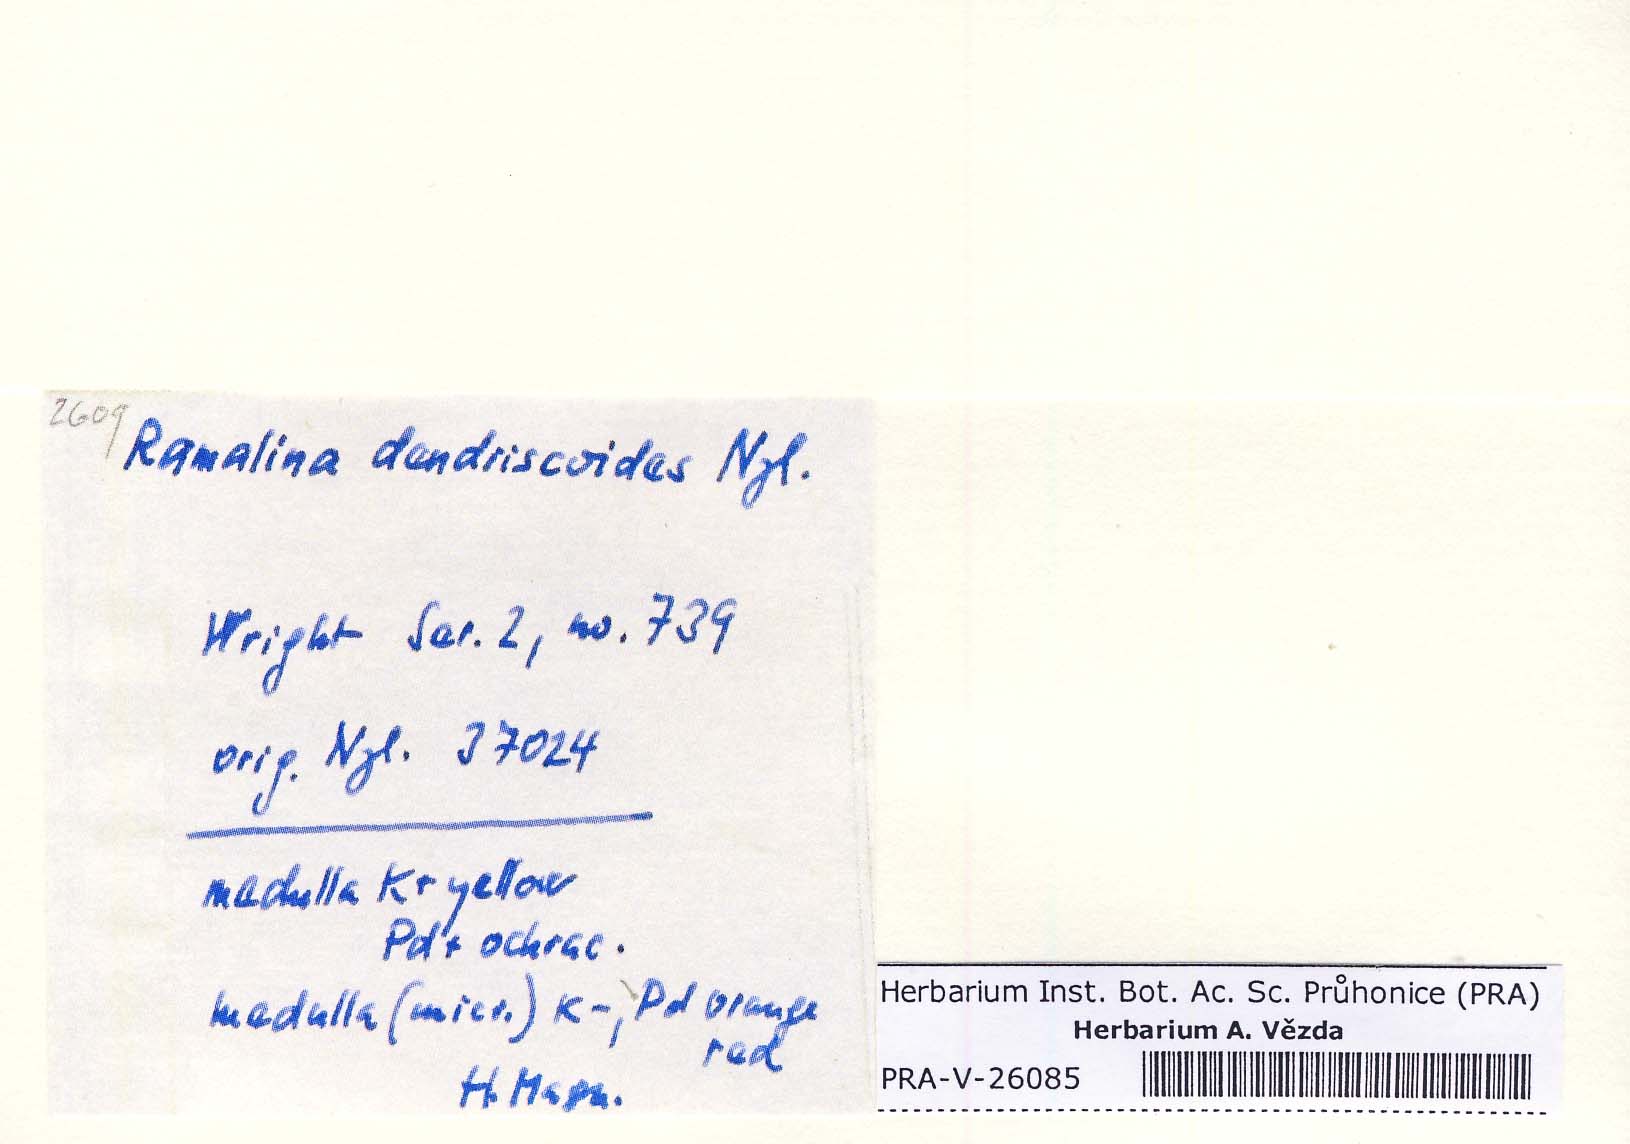 2609
Ramalina dendriscoides Nyl.
Wright Ser. 2, no. 739
orig. Nyl. 37024
medulla K+ yellow
Pd+ ochrac.
medulla (micr.) K-, Pd orange
red
H. Magn.
Herbarium Inst. Bot. Ac. Sc. Průhonice (PRA)
Herbarium A. Vězda
PRA-V-26085